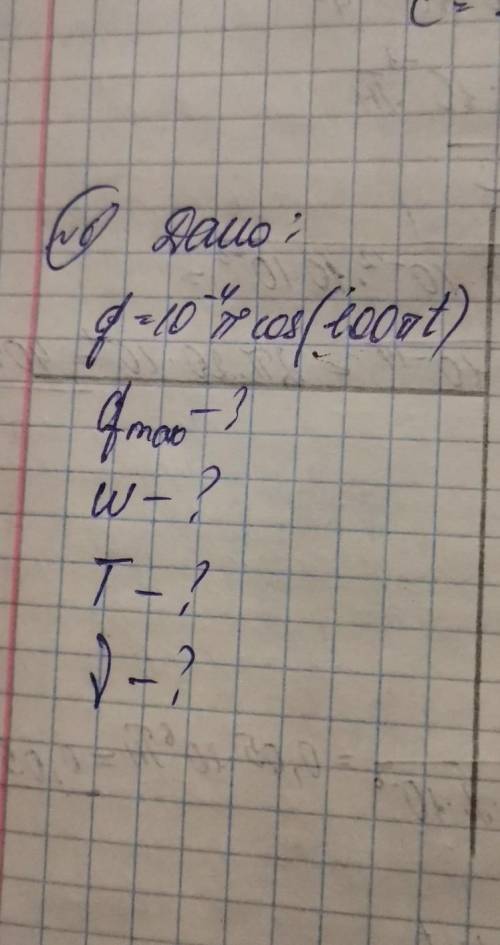 C =
№6 Дано:
q = 10⁻⁴ π cos(100πt)
qmax - ?
ω - ?
T - ?
ν - ?